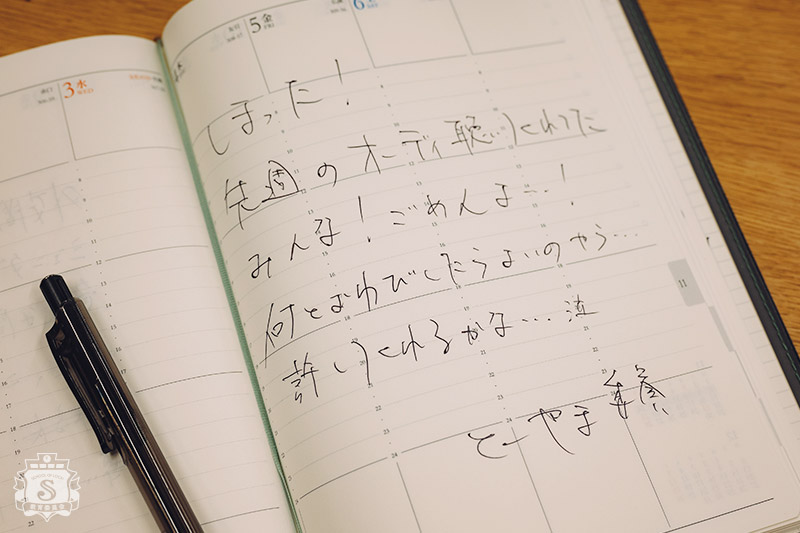 3 水 WED
5 金 FRI
6
しまった!
先週のオーディ聴いてくれてた
みんな!ごめんよ…!
何とおわびしたらよいのやら…
許してくれるかな…泣
とーやま委員
11
S